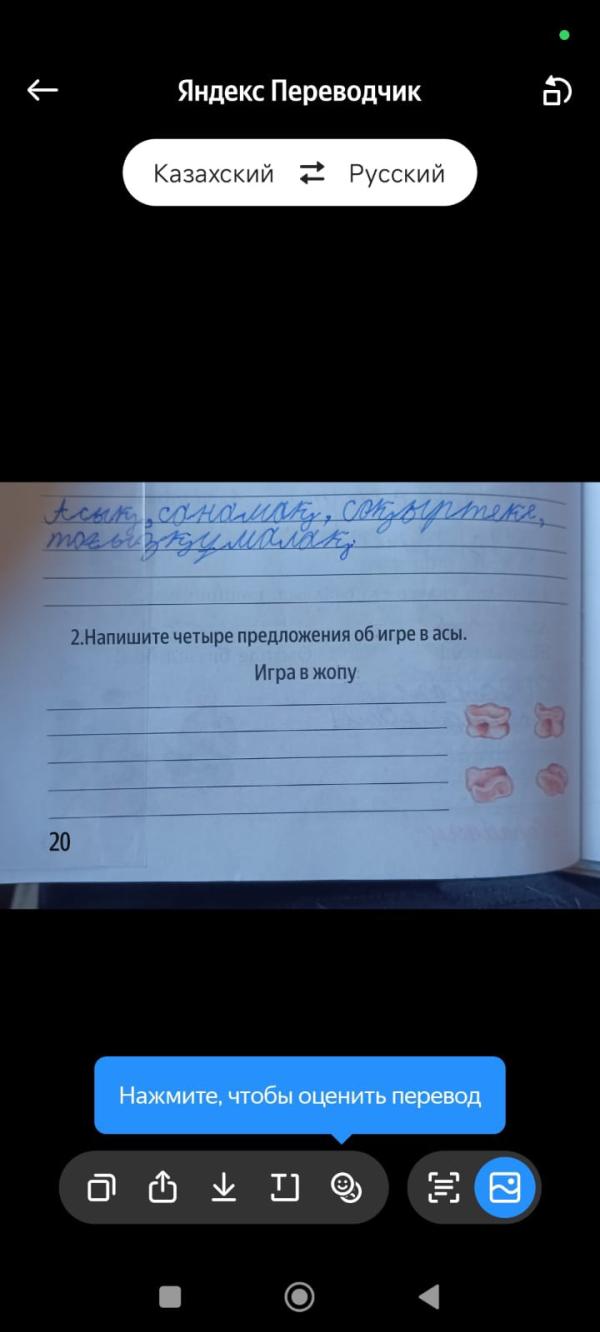 Яндекс Переводчик
Казахский Русский
Асық, санамақ, соқыртеке,
тоғызқұмалақ
2.Напишите четыре предложения об игре в асы.
Игра в жопу
20
Нажмите, чтобы оценить перевод